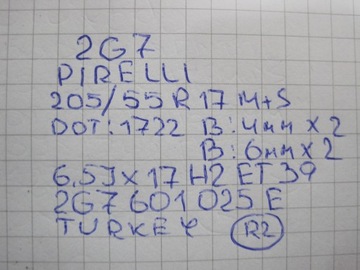 2G7
PIRELLI
205/55 R 17 M+S
DOT: 1722 B: 4мм x 2
B: 6мм x 2
6.5J x 17 H2 ET 39
2G7 601 025 E
TURKEY R2